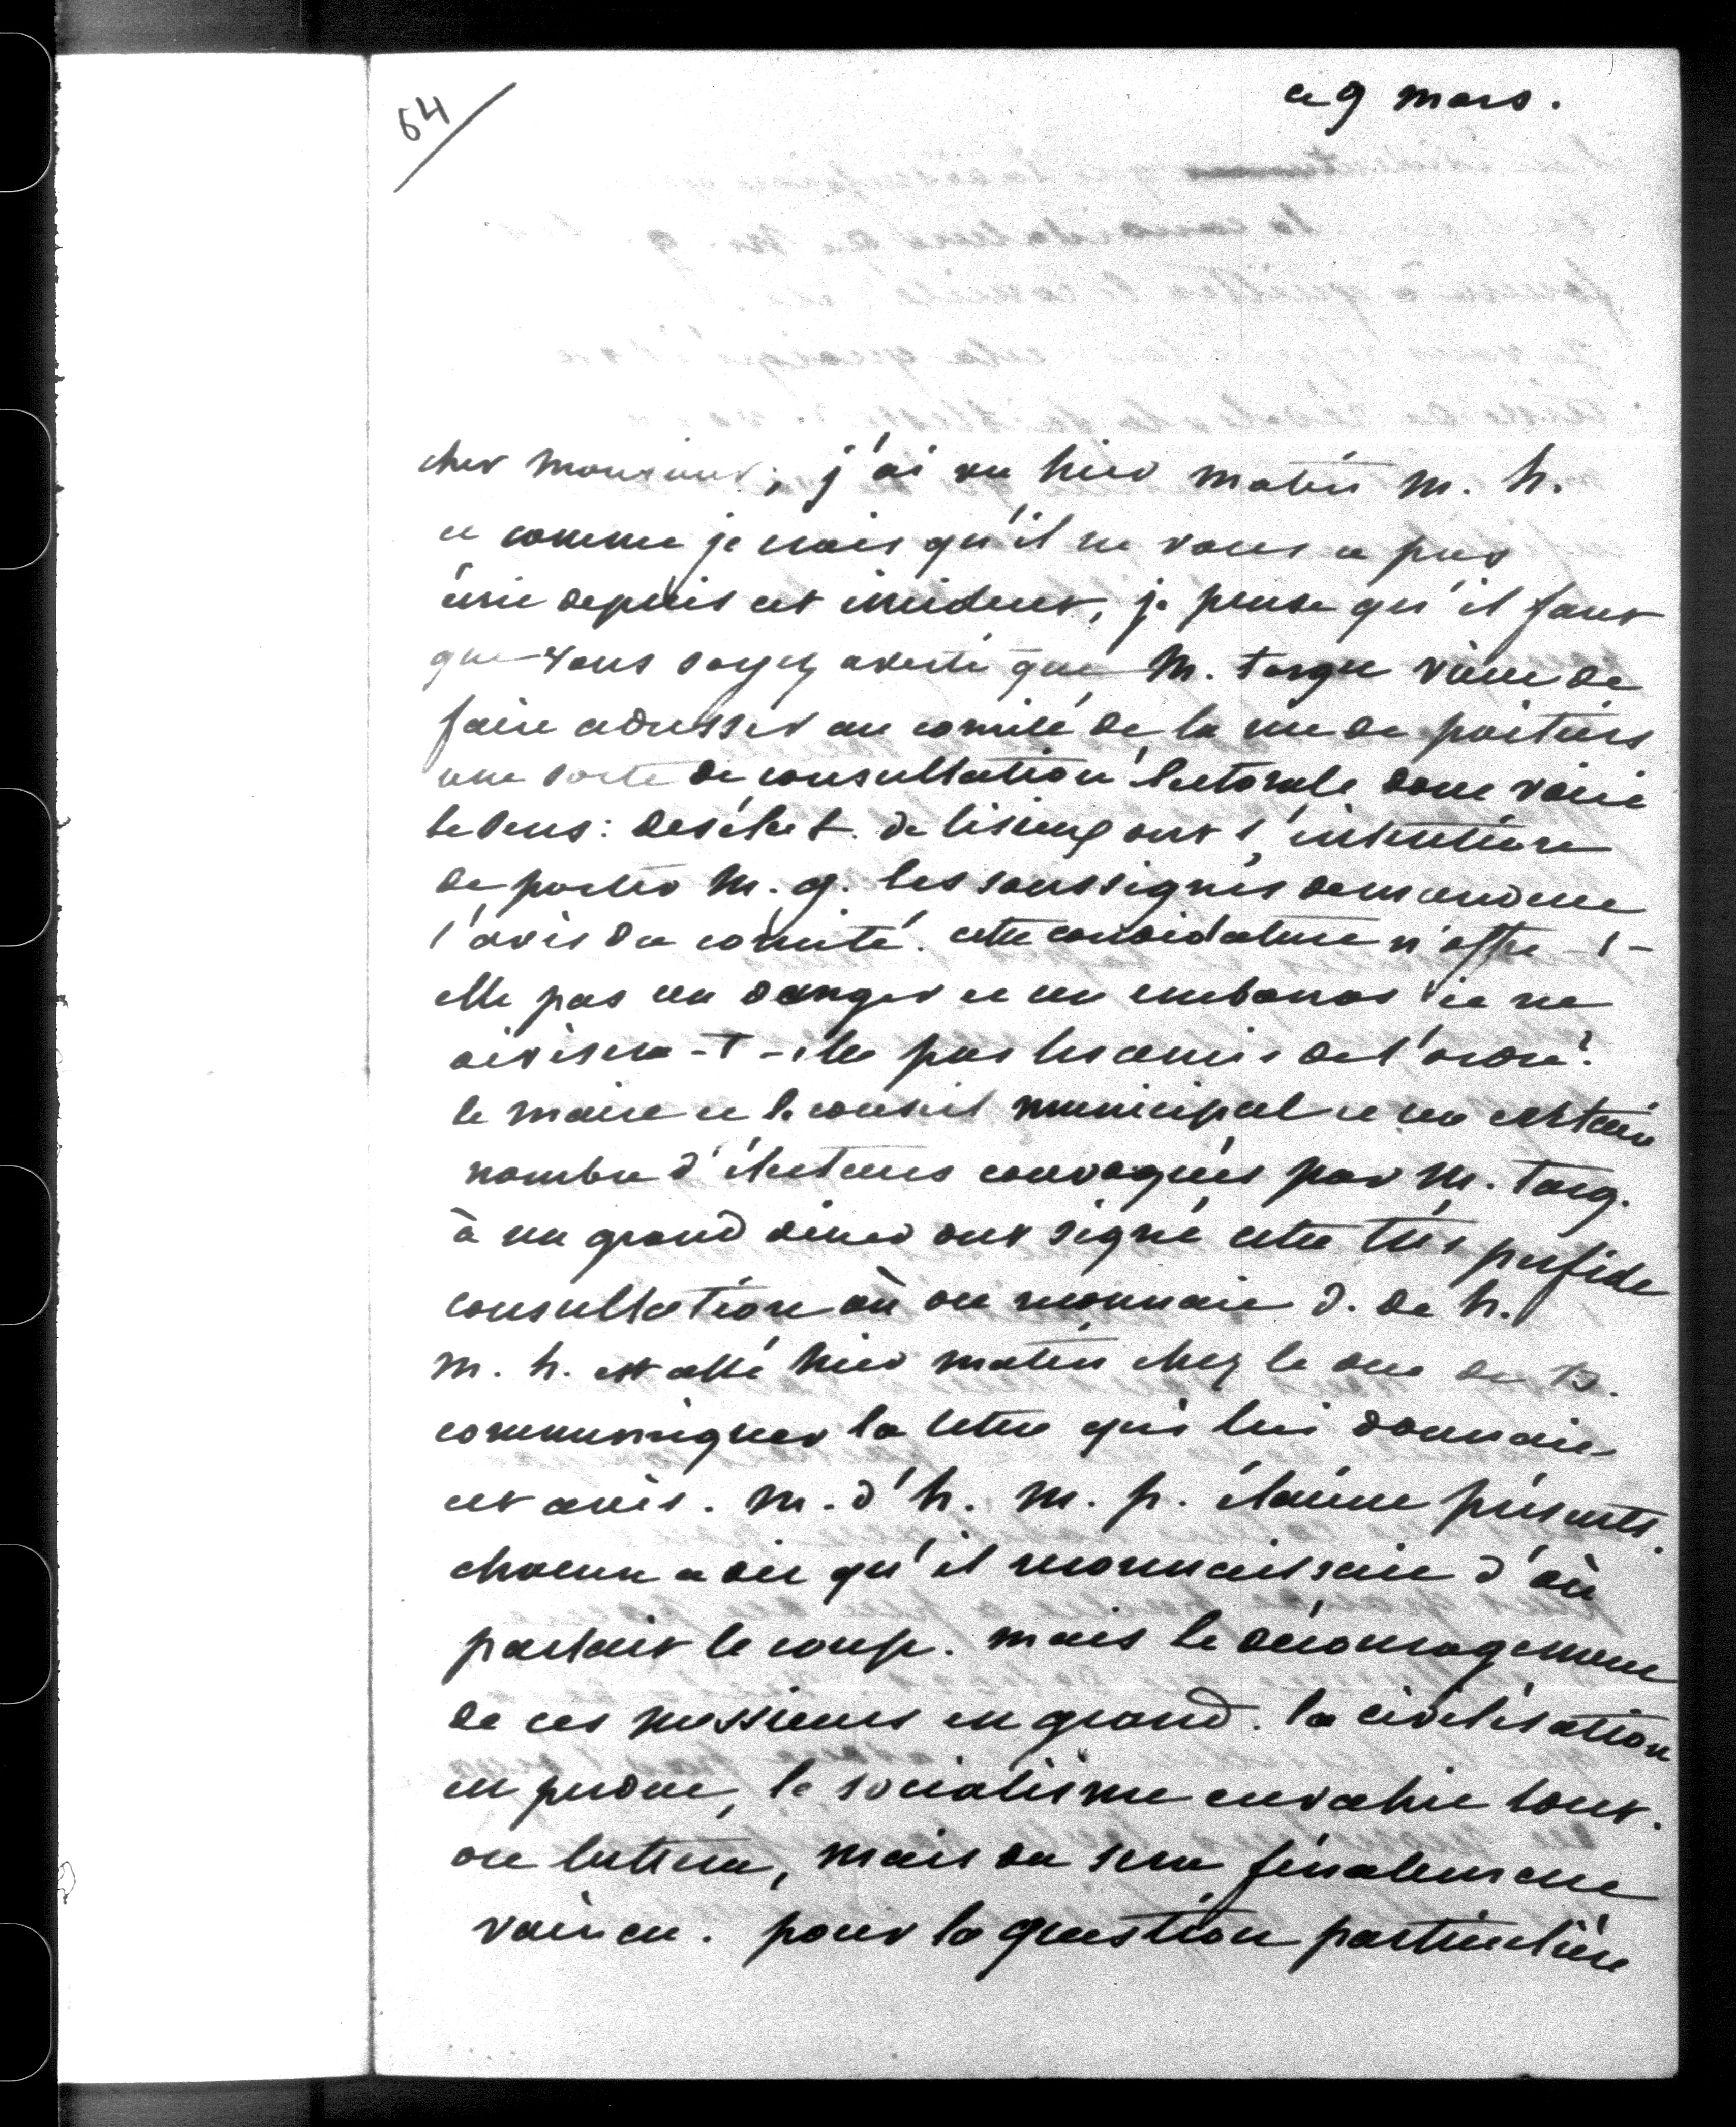 64
ce 9 mars.
cher monsieur, j'ai vu hier matin m. h.
et comme je crois qu'il ne vous a pas
écrit depuis cet incident, je pense qu'il faut
que vous soyez averti que M. targ vient de
faire adresser au comité de la rue de poitiers
une sorte de consultation électorale dont voici
le sens: des élect. de lisieux ont l'intention
de porter M. g. les soussignés demandent
l'avis du comité. cette candidature n'offre-t-
elle pas un danger et un embarras et ne
divisera-t-elle pas les amis de l'ordre?
le maire et le conseil municipal et un certain
nombre d'électeurs convoqués par M. targ.
à un grand diner ont signé cette très perfide
consultation où on reconnait d. de h.
m. h. est allé hier matin chez le duc de B.
communiquer la lettre qui lui donnait
cet avis. m. d'h. M. p. étaient présents.
chacun a dit qu'il reconnaissait d'où
partait le coup. mais le découragement
de ces messieurs est grand. la civilisation
est perdue, le socialisme envahit tout.
on luttera, mais on sera finalement
vaincu. pour la question particulière